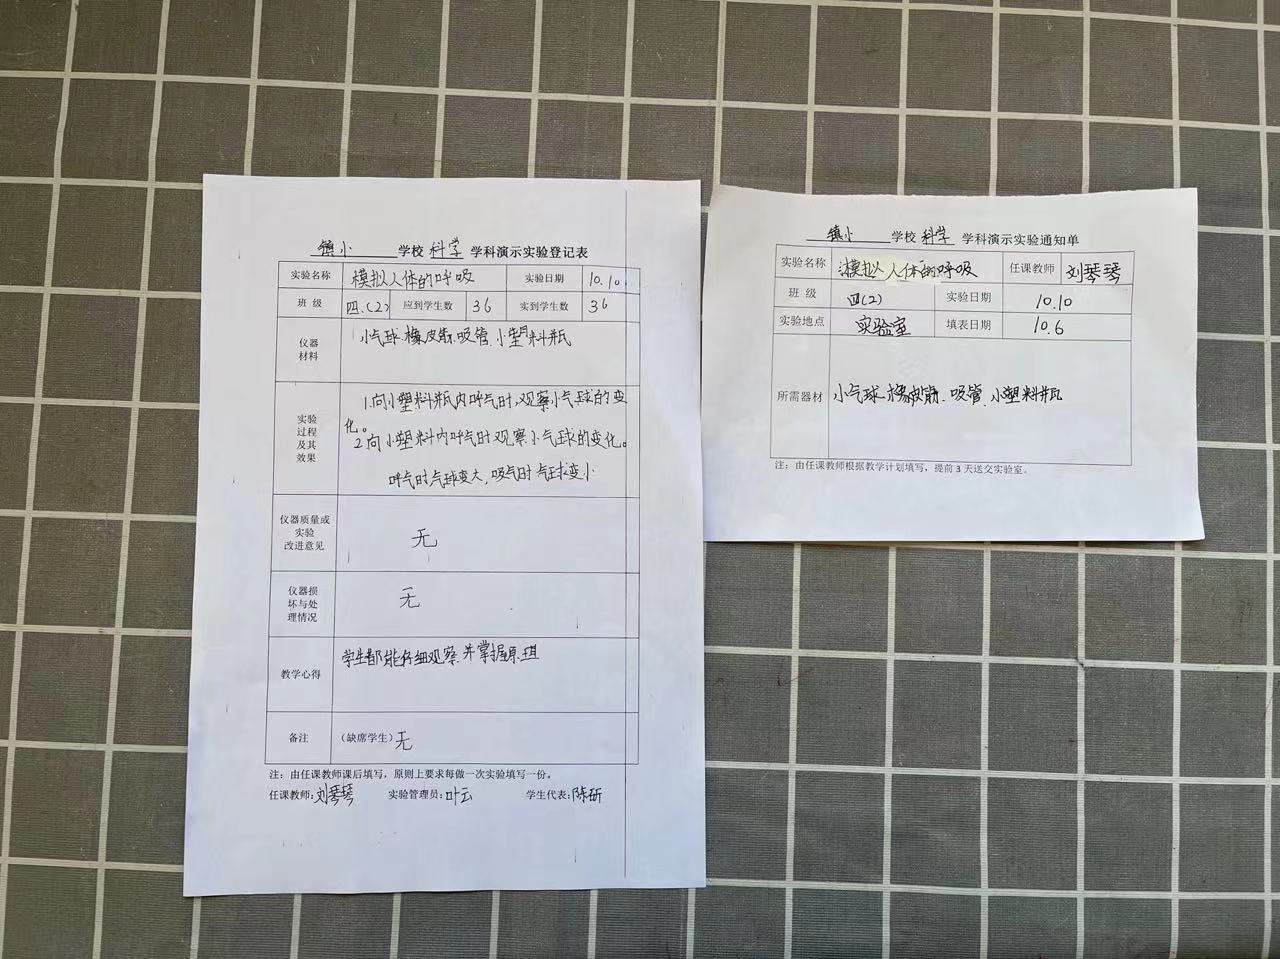 镇小 学校 科学 学科演示实验登记表
实验名称 模拟人体的呼吸 实验日期 10.10
班 级 四.(2) 应到学生数 36 实到学生数 36
仪器
材料
小气球.橡皮筋.吸管.小塑料瓶
实验
过程
及其
效果
1.向小塑料瓶内呼气时,观察小气球的变
化。
2.向小塑料内呼气时观察小气球的变化。
呼气时气球变大,吸气时气球变小
仪器质量或
实验
改进意见
无
仪器损
坏与处
理情况
无
教学心得 学生都能仔细观察.并掌握原理
备注 (缺席学生)无
注:由任课教师课后填写,原则上要求每做一次实验填写一份。
任课教师:刘琴琴 实验管理员:叶云 学生代表:陈研
镇小 学校 科学 学科演示实验通知单
实验名称 模拟人体的呼吸 任课教师 刘琴琴
班 级 四(2) 实验日期 10.10
实验地点 实验室 填表日期 10.6
所需器材 小气球.橡皮筋.吸管.小塑料瓶
注:由任课教师根据教学计划填写,提前 3 天送交实验室。